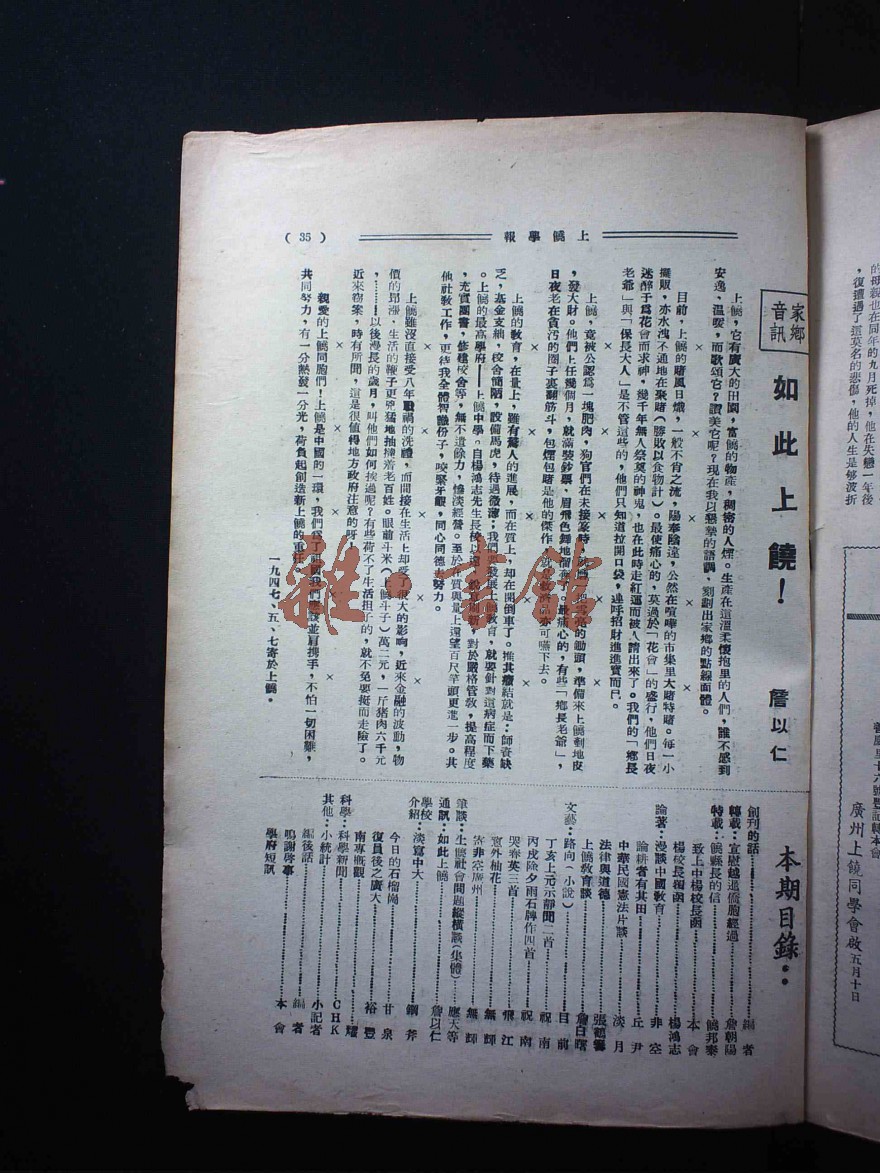 上饒學報
(35)
家鄉音訊
如此上饒！
詹以仁
上饒，它有廣大的田園，富饒的物產，稠密的人煙。生產在這溫柔懷抱里的人們，誰不感到
安逸、溫暖，而歌頌它？讚美它呢？現在我以懇摯的語調，刻劃出家鄉的點線面體。
目前，上饒的賭風日熾，一般不肯之流，陽奉陰違，公然在喧嘩的市集里大賭特賭。每一小
攤販，亦水洩不通地在聚賭（勝敗以食物計）。最使痛心的，莫過於「花會」的盛行，他們日夜
迷醉于為花會而求神，幾千年無人祭奠的神鬼，也在此時走紅運而被人請出來了。我們的「鄉長
老爺」與「保長大人」是不管這些的，他們只知道拉開口袋，連呼招財進進寶而已。
× × × ×
上饒，竟被公認為一塊肥肉，狗官們在未接篆時，的鋤頭，準備來上饒剩地皮
，發大財。他們上任幾個月，就滿裝鈔票，眉飛色舞地溜。最痛心的，有些「鄉長老爺」，
日夜老在貪污的圈子裏翻筋斗，包煙包賭是他的傑作，亦可嚥下去。
× × × ×
上饒的教育，在量上，雖有驚人的進展，而在質上，却在開倒車了。推其癥結就是：師資缺
乏，基金支絀，校舍簡陋，設備馬虎，待遇微薄；我們要發展上饒教育，就要針對這病症而下藥
。上饒的最高學府——上饒中學。自楊鴻志先生長校以還，對於嚴格管教，提高程度
，充實圖書，修建校舍等，無不遺餘力，慘淡經營。至於在質與量上還望百尺竿頭更進一步。其
他社教工作，更待我全體智識份子，咬緊牙齦，同心同德去努力。
× × × ×
上饒雖沒直接受八年戰禍的洗禮，而間接在生活上却受了很大的影响，近來金融的波動，物
價的昂漲，生活的鞭子更兇猛地抽撻着老百姓。眼前斗米（上饒斗子）萬二元，一斤豬肉六千元
，……以後漫長的歲月，叫他們如何挨過呢？有些荷不了生活担子的，就不免要挺而走險了。
近來物案，時有所聞，這是很值得地方政府注意的呀！
× × × ×
親愛的上饒同胞們！上饒是中國的一環，我們為了祖國我們應該並肩携手，不怕一切困難，
共同努力，有一分熱發一分光，荷負起創造新上饒的重任。
一九四七、五、七寄於上饒。
本期目錄：
創刊的話……編者
轉載：宣慰越進僑胞經過……詹朝陽
特載：饒縣長的信……饒邦泰
致上中楊校長函……本會
楊校長覆函……楊鴻志
論著：漫談中國教育……非空
論耕者有其田……丘尹
中華民國憲法片談……淡月
法律與道德……張鶴
上饒教育談……詹白曙
文藝：路向（小說）……目前
丁亥上元示靜聞二首……祝南
丙戌除夕雨石牌作四首……祝南
哭春英三首……飛江
意外柚花……無輝
寄非空廣州……無輝
筆談：生饒社會問題縱橫談（集體）……應天等
通訊：如此上饒……詹以仁
學校介紹：淡寫中大……鋼斧
今日的石榴崗……甘泉
復員後之廣大……裕豐
南專概觀……耀
科學：科學新聞……CHK
其他：小統計……小記者
編後話……編者
鳴謝啓事……本會
學府短訊
的母親也在同年的九月死掉，他在失戀一年後
，復遭遇了這莫名的悲傷，他的人生是够波折
廣州上饒同學會啟五月十日
雜·書館